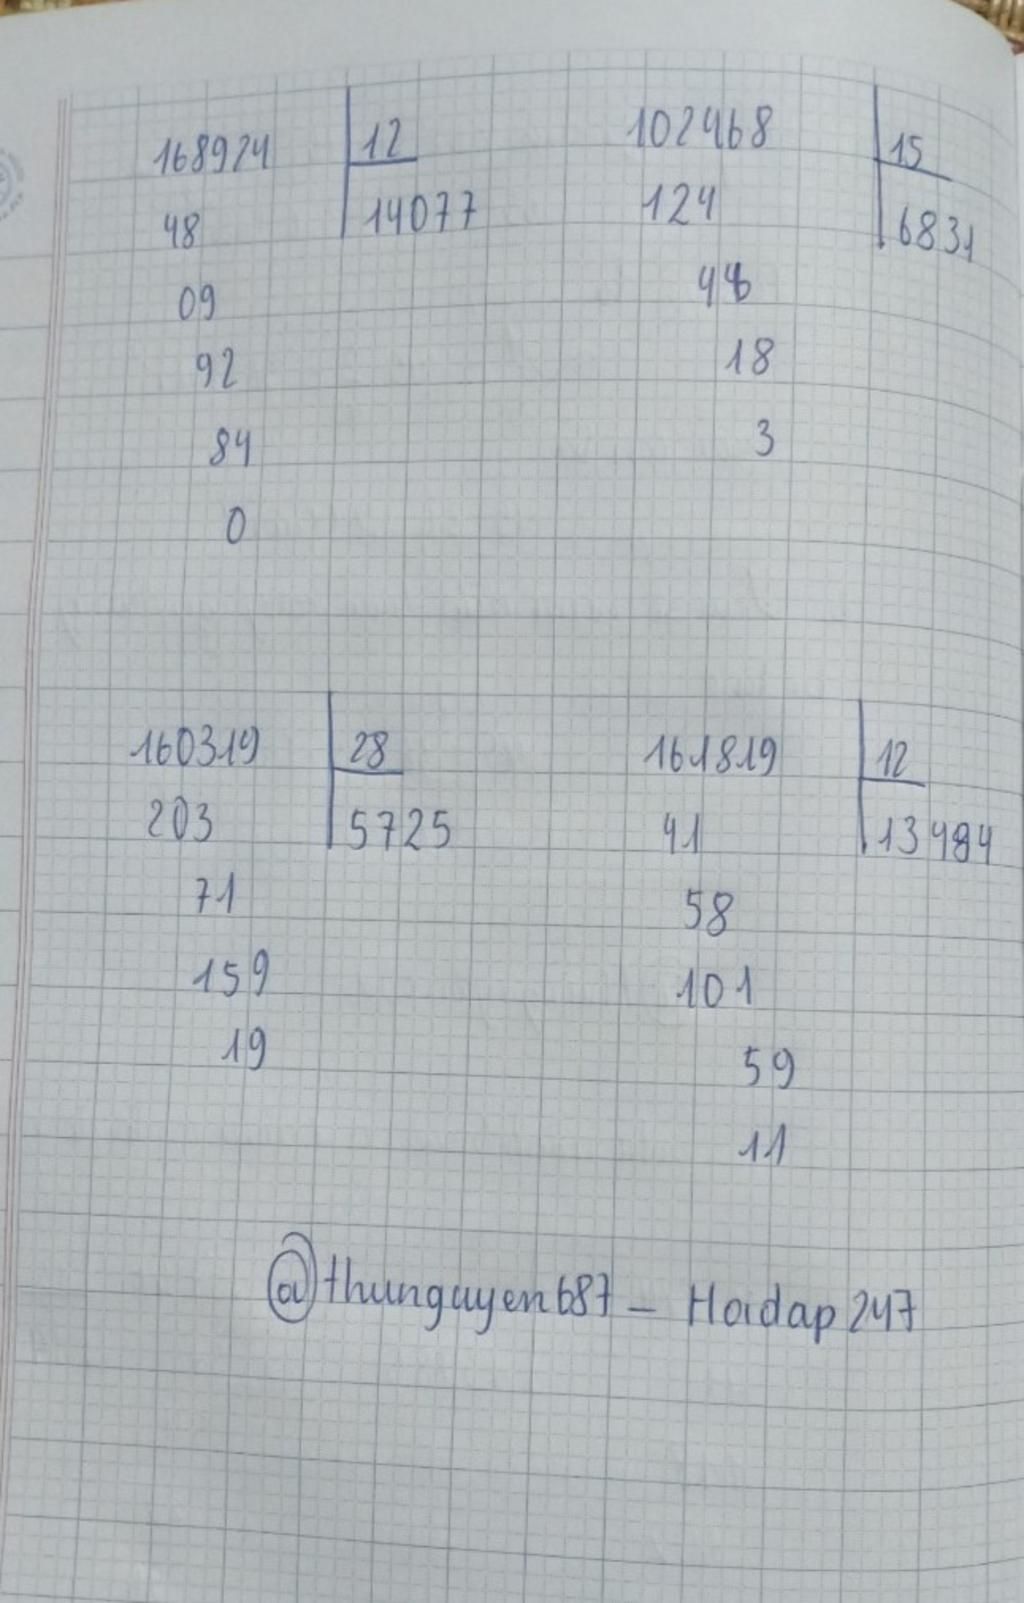 168924 12
48 14077
09
92
84
0
102468 15
124 6831
46
18
3
160319 28
203 5725
71
159
19
161819 12
41 13484
58
101
59
11
@thunguyen687 – Hoidap247